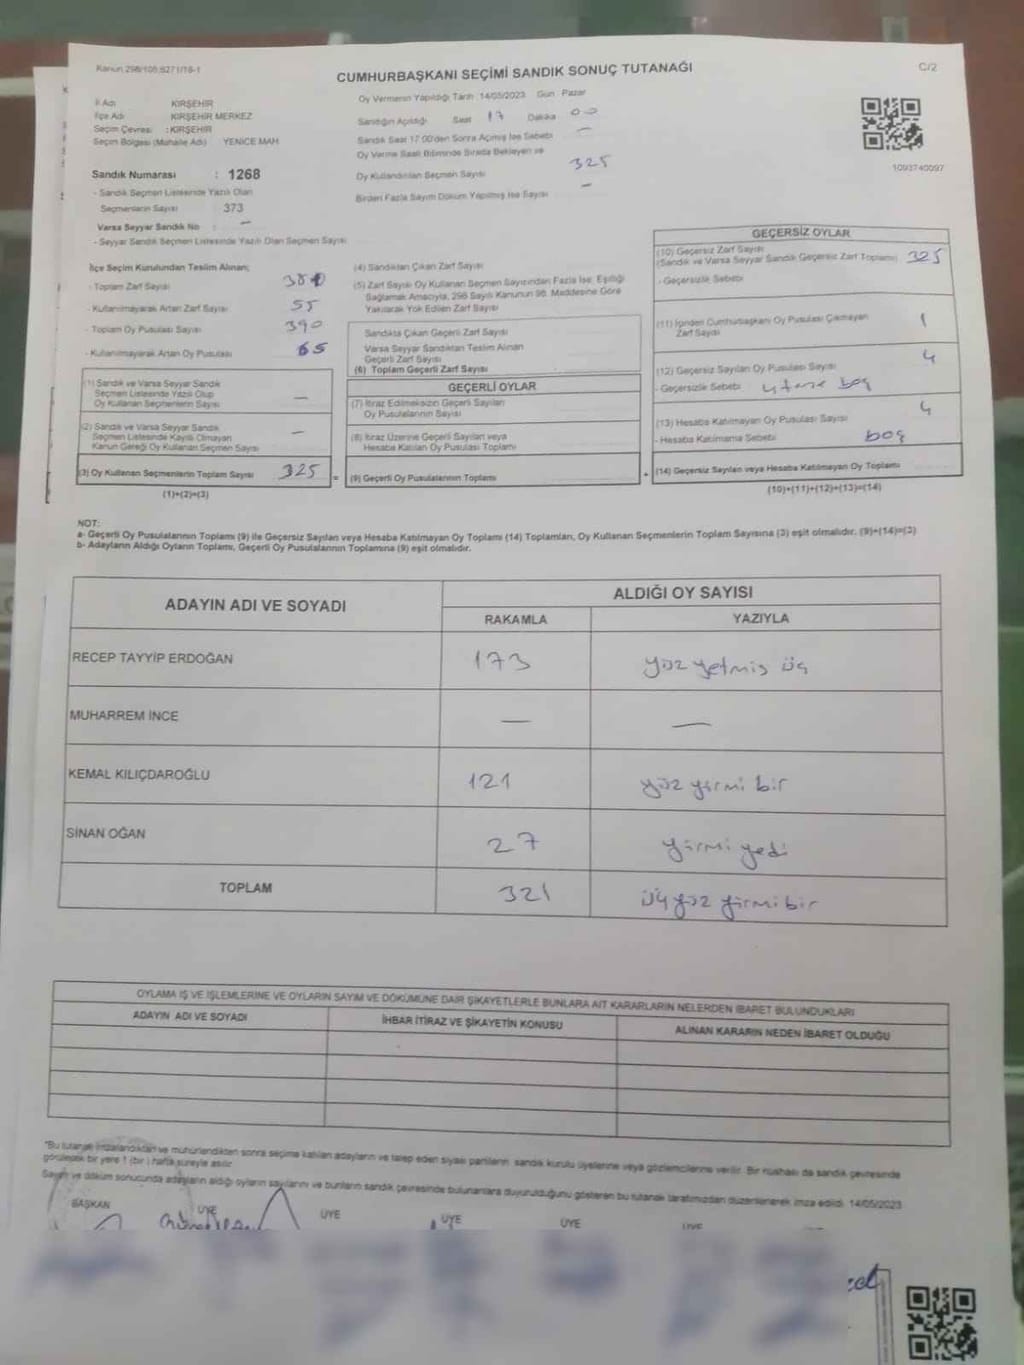 Kanun 298/105;6271/16-1
C/2
CUMHURBAŞKANI SEÇİMİ SANDIK SONUÇ TUTANAĞI
İl Adı KIRŞEHİR
İlçe Adı KIRŞEHİR MERKEZ
Seçim Çevresi : KIRŞEHİR
Seçim Bölgesi (Mahalle Adı) YENİCE MAH
Oy Vermenin Yapıldığı Tarih 14/05/2023 Gün Pazar
Sandığın Açıldığı Saat 17 Dakika 00
Sandık Saat 17:00'den Sonra Açılmış İse Sebebi —
Oy Verme Saati Bitiminde Sırada Bekleyen ve
Oy Kullandırılan Seçmen Sayısı 325
Birden Fazla Sayım Döküm Yapılmış İse Sayısı —
1093740097
Sandık Numarası : 1268
- Sandık Seçmen Listesinde Yazılı Olan
Seçmenlerin Sayısı 373
Varsa Seyyar Sandık No : —
- Seyyar Sandık Seçmen Listesinde Yazılı Olan Seçmen Sayısı
İlçe Seçim Kurulundan Teslim Alınan;
- Toplam Zarf Sayısı 380
- Kullanılmayarak Artan Zarf Sayısı 55
- Toplam Oy Pusulası Sayısı 390
- Kullanılmayarak Artan Oy Pusulası 65
(1) Sandık ve Varsa Seyyar Sandık
Seçmen Listesinde Yazılı Olup
Oy Kullanan Seçmenlerin Sayısı —
(2) Sandık ve Varsa Seyyar Sandık
Seçmen Listesinde Kayıtlı Olmayan
Kanun Gereği Oy Kullanan Seçmen Sayısı —
(3) Oy Kullanan Seçmenlerin Toplam Sayısı 325 =
(1)+(2)=(3)
(4) Sandıktan Çıkan Zarf Sayısı
(5) Zarf Sayısı Oy Kullanan Seçmen Sayısından Fazla İse, Eşitliği
Sağlamak Amacıyla, 298 Sayılı Kanunun 98. Maddesine Göre
Yakılarak Yok Edilen Zarf Sayısı
Sandıkta Çıkan Geçerli Zarf Sayısı
Varsa Seyyar Sandıktan Teslim Alınan
Geçerli Zarf Sayısı
(6) Toplam Geçerli Zarf Sayısı
GEÇERLİ OYLAR
(7) İtiraz Edilmeksizin Geçerli Sayılan
Oy Pusulalarının Sayısı
(8) İtiraz Üzerine Geçerli Sayılan veya
Hesaba Katılan Oy Pusulası Toplamı
(9) Geçerli Oy Pusulalarının Toplamı +
GEÇERSİZ OYLAR
(10) Geçersiz Zarf Sayısı
(Sandık ve Varsa Seyyar Sandık Geçersiz Zarf Toplamı) 325
- Geçersizlik Sebebi
(11) İçinden Cumhurbaşkanı Oy Pusulası Çıkmayan
Zarf Sayısı 1
(12) Geçersiz Sayılan Oy Pusulası Sayısı 4
- Geçersizlik Sebebi 4 tane boş
(13) Hesaba Katılmayan Oy Pusulası Sayısı 4
- Hesaba Katılmama Sebebi boş
(14) Geçersiz Sayılan veya Hesaba Katılmayan Oy Toplamı
(10)+(11)+(12)+(13)=(14)
NOT:
a- Geçerli Oy Pusulalarının Toplamı (9) ile Geçersiz Sayılan veya Hesaba Katılmayan Oy Toplamı (14) Toplamları, Oy Kullanan Seçmenlerin Toplam Sayısına (3) eşit olmalıdır. (9)+(14)=(3)
b- Adayların Aldığı Oyların Toplamı, Geçerli Oy Pusulalarının Toplamına (9) eşit olmalıdır.
ADAYIN ADI VE SOYADI ALDIĞI OY SAYISI
RAKAMLA YAZIYLA
RECEP TAYYİP ERDOĞAN 173 yüz yetmiş üç
MUHARREM İNCE — —
KEMAL KILIÇDAROĞLU 121 yüz yirmi bir
SİNAN OĞAN 27 yirmi yedi
TOPLAM 321 üç yüz yirmi bir
OYLAMA İŞ VE İŞLEMLERİNE VE OYLARIN SAYIM VE DÖKÜMÜNE DAİR ŞİKAYETLERLE BUNLARA AİT KARARLARIN NELERDEN İBARET BULUNDUKLARI
ADAYIN ADI VE SOYADI İHBAR İTİRAZ VE ŞİKAYETİN KONUSU ALINAN KARARIN NEDEN İBARET OLDUĞU
*Bu tutanak imzalandıktan ve mühürlendikten sonra seçime katılan adayların ve talep eden siyasi partilerin sandık kurulu üyelerine veya gözlemcilerine verilir. Bir nüshası da sandık çevresinde
görülecek bir yere 1 (bir) hafta süreyle asılır.
Sayım ve döküm sonucunda adayların aldığı oyların sayılarını ve bunların sandık çevresinde bulunanlara duyurulduğunu gösteren bu tutanak tarafımızdan düzenlenerek imza edildi. 14/05/2023
BAŞKAN ÜYE ÜYE ÜYE ÜYE ÜYE